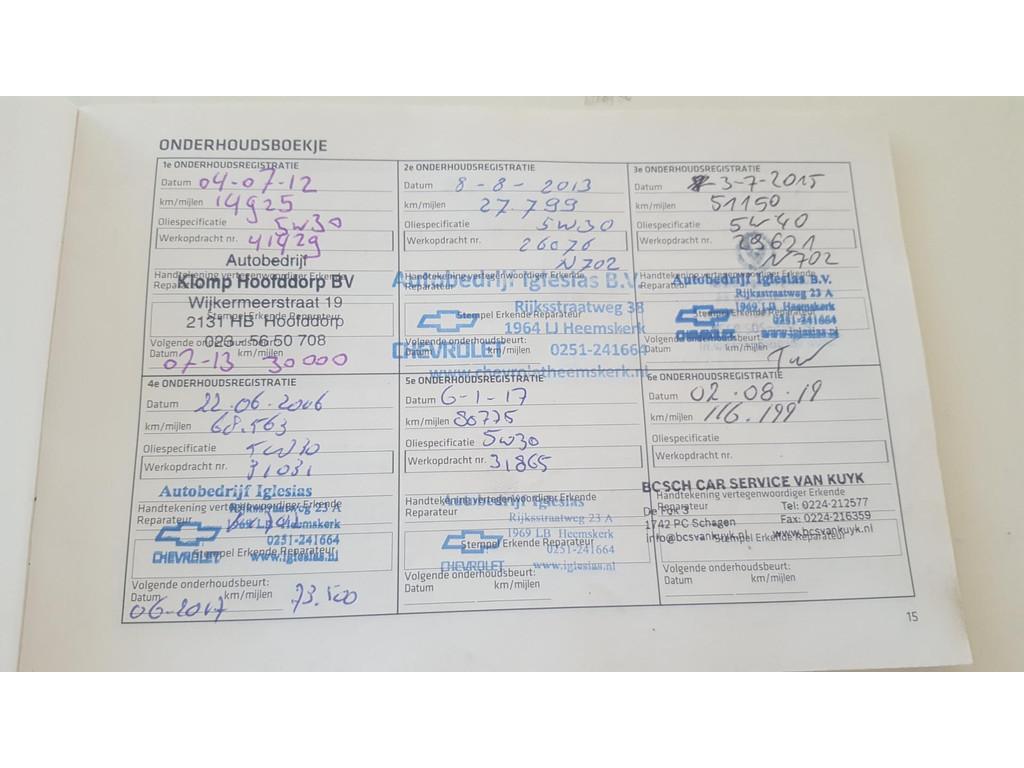 ONDERHOUDSBOEKJE
1e ONDERHOUDSREGISTRATIE
Datum 04-07-12
km/mijlen 14925
Oliespecificatie 5W30
Werkopdracht nr. 41929
Autobedrijf
Handtekening vertegenwoordiger Erkende
Reparateur
Klomp Hoofddorp BV
Wijkermeerstraat 19
Stempel Erkende Reparateur
2131 HB Hoofddorp
023 - 56 50 708
Volgende onderhoudsbeurt:
Datum km/mijlen
07-13 30000
2e ONDERHOUDSREGISTRATIE
Datum 8-8-2013
km/mijlen 27.799
Oliespecificatie 5W30
Werkopdracht nr. 26076
N702
Handtekening vertegenwoordiger Erkende
Reparateur
Autobedrijf Iglesias B.V.
Rijksstraatweg 38
Stempel Erkende Reparateur
1964 LJ Heemskerk
Volgende onderhoudsbeurt:
CHEVROLET 0251-241664
Datum km/mijlen
www.chevroletheemskerk.nl
3e ONDERHOUDSREGISTRATIE
Datum 3-7-2015
km/mijlen 51150
Oliespecificatie 5W40
Werkopdracht nr. 29621
N702
Handtekening vertegenwoordiger Erkende
Reparateur
Autobedrijf Iglesias B.V.
Rijksstraatweg 23 A
1969 LB Heemskerk
Stempel Erkende Reparateur
0251-241664
CHEVROLET www.iglesias.nl
Volgende onderhoudsbeurt:
Datum km/mijlen
4e ONDERHOUDSREGISTRATIE
Datum 22.06.2016
km/mijlen 68.563
Oliespecificatie 5W30
Werkopdracht nr. 31031
Autobedrijf Iglesias
Handtekening vertegenwoordiger Erkende
Reparateur
Rijksstraatweg 23 A
1969 LB Heemskerk
0251-241664
Stempel Erkende Reparateur
CHEVROLET www.iglesias.nl
Volgende onderhoudsbeurt:
Datum km/mijlen
06-2017 73.500
5e ONDERHOUDSREGISTRATIE
Datum 6-1-17
km/mijlen 80775
Oliespecificatie 5W30
Werkopdracht nr. 31865
Autobedrijf Iglesias
Handtekening vertegenwoordiger Erkende
Reparateur
Rijksstraatweg 23 A
1969 LB Heemskerk
Stempel Erkende Reparateur
0251-241664
CHEVROLET www.iglesias.nl
Volgende onderhoudsbeurt:
Datum km/mijlen
6e ONDERHOUDSREGISTRATIE
Datum 02.08.19
km/mijlen 116.199
Oliespecificatie
Werkopdracht nr.
BCSCH CAR SERVICE VAN KUYK
Handtekening vertegenwoordiger Erkende
Reparateur
De Fok 3 Tel: 0224-212577
1742 PC Schagen Fax: 0224-216359
info@bcsvankuyk.nl www.bcsvankuyk.nl
Stempel Erkende Reparateur
Volgende onderhoudsbeurt:
Datum km/mijlen
15